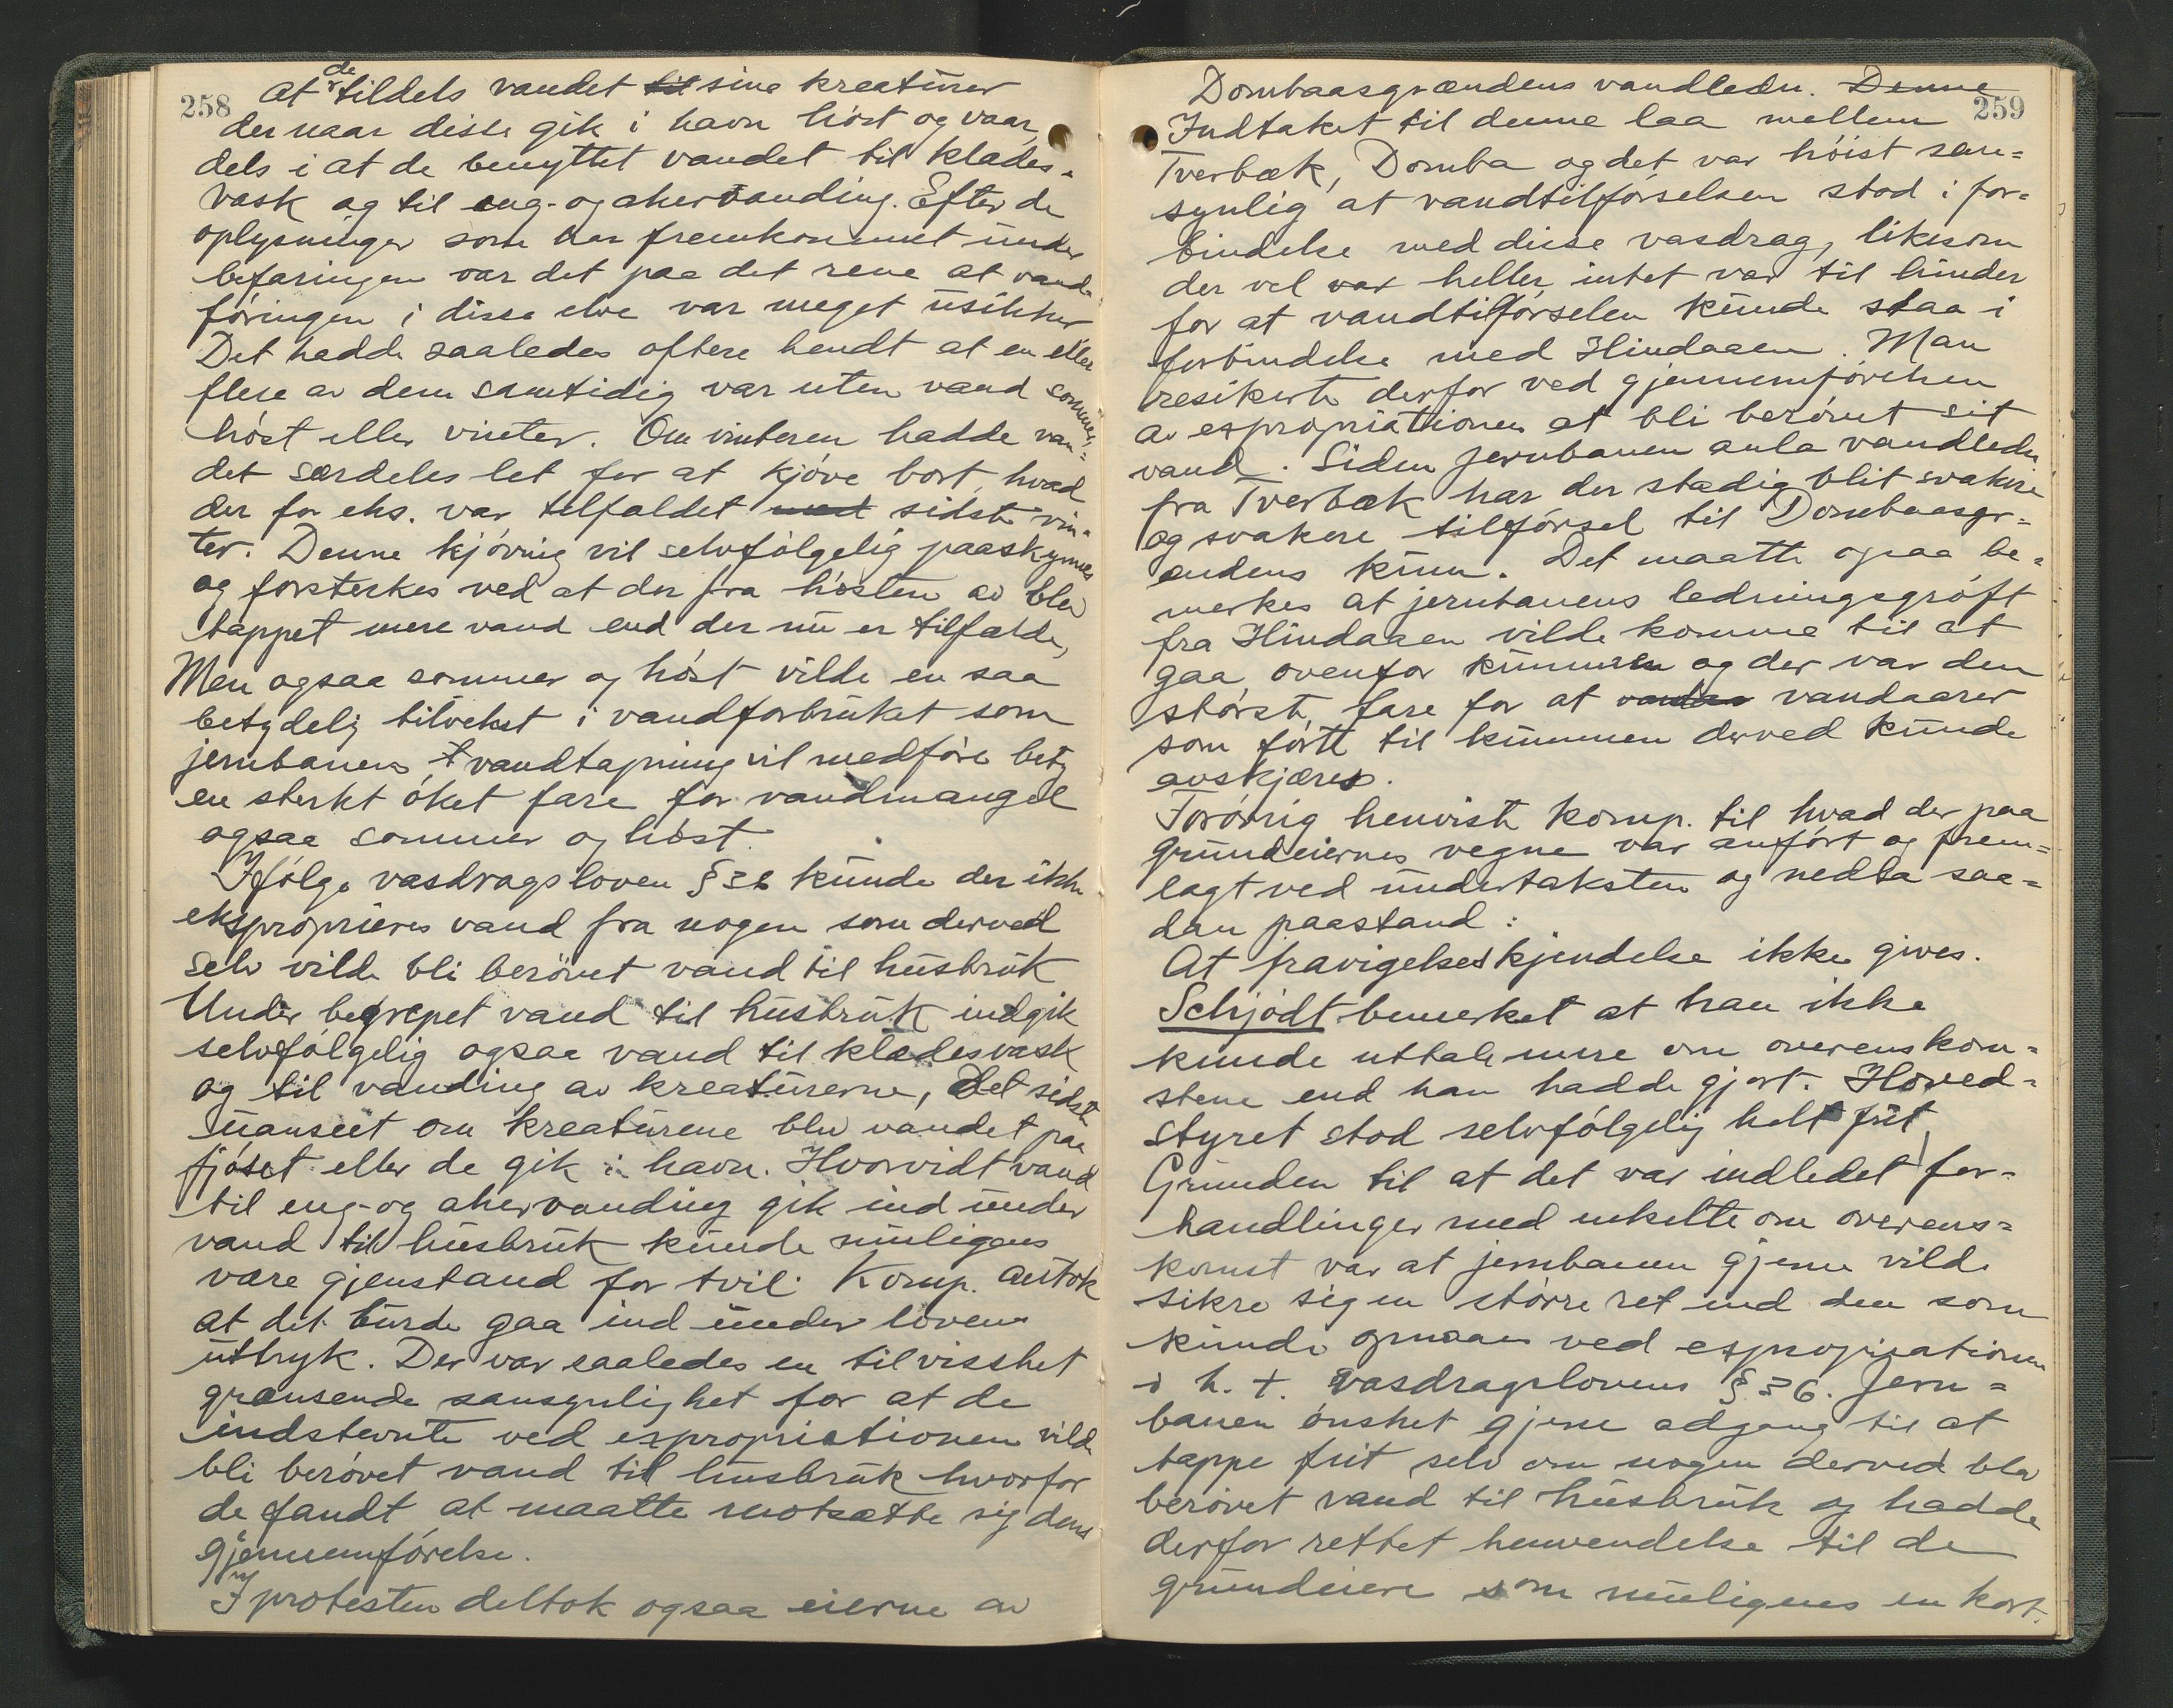 258
At de tildels vandet til sine kreaturer
der naar disse gik i havn høst og vaar,
dels i at de benyttet vandet til klædes-
vask og til eng- og akervanding. Efter de
oplysninger som har fremkommet under
befaringen var det paa det rene at vand-
føringen i disse elve var meget usikker
Det hadde saaledes oftere hendt at en eller
flere av dem samtidig var uten vand sommer,
høst eller vinter. Om vinteren hadde van=
det særdeles let for at kjøve bort, hvad
der for eks. var tilfældet med sidste vin=
ter. Denne kjøving vil selvfølgelig paaskynnes
og forsterkes ved at der fra høsten av blev
tappet mere vand end der nu er tilfælde,
Men ogsaa sommer og høst vilde en saa
betydelig tilvekst i vandforbruket som
jernbanens t vandtapning vil medføre bety
en sterkt øket fare for vandmangel
ogsaa sommer og høst.
Ifølge vasdragsloven § 36 kunde der ikke
eksproprieres vand fra nogen som derved
selv vilde bli berøvet vand til husbruk
Under begrepet vand til husbruk indgik
selvfølgelig ogsaa vand til klædesvask
og til vanding av kreaturerne, det sidste
uanseet om kreaturene blev vandet paa
fjøset eller de gik i havn. Hvorvidt vand
til eng- og akervanding gik ind under
vand til husbruk kunde muligens
være gjenstand for tvil. Komp. antok
at det burde gaa ind under lovens
uttryk. Der var saaledes en til visshet
grænsende sansynlighet for at de
indstevnte ved expropriationen vilde
bli berøvet vand til husbruk hvorfor
de fandt at maatte motsætte sig dens
gjennemførelse.
I protesten deltok ogsaa eierne av
259
Dombaasgrændens vandledn. Denne
Indtaket til denne laa mellem
Tverbæk, Domba og det var høist san=
synlig at vandtilførselsen stod i for=
bindelse med disse vasdrag, likesom
der vel var heller intet var til hinder
for at vandtilførselen kunde staa i
forbindelse med Hindaaen. Man
resikerte derfor ved gjennemførelsen
av expropriationen at bli berøvet sit
vand. Siden jernbanen anla vandledn
fra Tverbæk har der stadig blit svakere
og svakere tilførsel til Dombaasgr=
ændens kum. Det maatte ogsaa be=
merkes at jernbanens ledningsgrøft
fra Hindaaen vilde komme til at
gaa ovenfor kummen og der var den
største fare for at vandaarer
som førte til kummen derved kunde
avskjæres.
Forøvrig henviste komp. til hvad der paa
grundeiernes vegne var anført og frem=
lagt ved undertaksten og nedla saa=
dan paastand:
At fravigelseskjendelse ikke gives.
Schjødt bemerket at han ikke
kunde uttale mere om overenskom=
stene end han hadde gjort. Hoved=
styret stod selvfølgelig helt frit,
Grunden til at det var indledet for=
handlinger med enkelte om overens=
komst var at jernbanen gjerne vilde
sikre sig en større ret end den som
kunde opnaaes ved expropriationen
i h. t. vasdragslovens § 36. Jern=
banen ønsket gjerne adgang til at
tappe frit selv om nogen derved blev
berøvet vand til husbruk og hadde
derfor rettet henvendelse til de
grundeiere som muligens en kort.